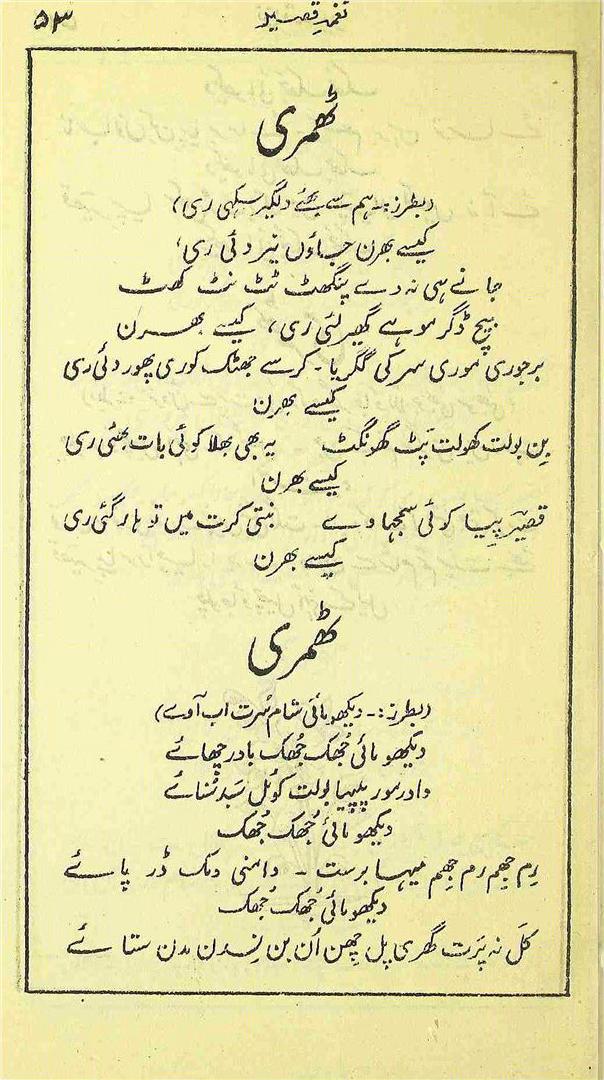 ۵۳ نغمۂ قصیر
ٹھمری
(بطرز:۔ ہم سے بھئے دلگیر سکھی ری)
کیسے بھرن جاؤں نیر دئی ری،
جانے ہی نہ دے پنگھٹ ٹٹ نٹ کھٹ
بیچ ڈگر موہے گھیر لئی ری، کیسے بھرن
برجوری موری سر کی گگریا۔ کر سے جھٹک کوری پھور دئی ری
کیسے بھرن
بِن بولت کھولت پَٹ گھونگٹ یہ بھی بھلا کوئی بات بھئی ری
کیسے بھرن
قصیر پیا کوئی سمجھاوے بنتی کرت میں تو ہار گئی ری
کیسے بھرن
ٹھمری
(بطرز:۔ دیکھو مائی شام سُرت اب آوے)
دیکھو مائی جُھک جُھک بادر چھائے
دادر مور پپیہا بولت کوئل سَبد سُنائے
دیکھو مائی جُھک جُھک
رِم جھِم رم جھِم میہا برست ۔ دامنی دمک ڈر پائے
دیکھو مائی جُھک جُھک
کَل نہ پَرَت گھری پل چھِن اُن بن نِسدن مدن ستائے